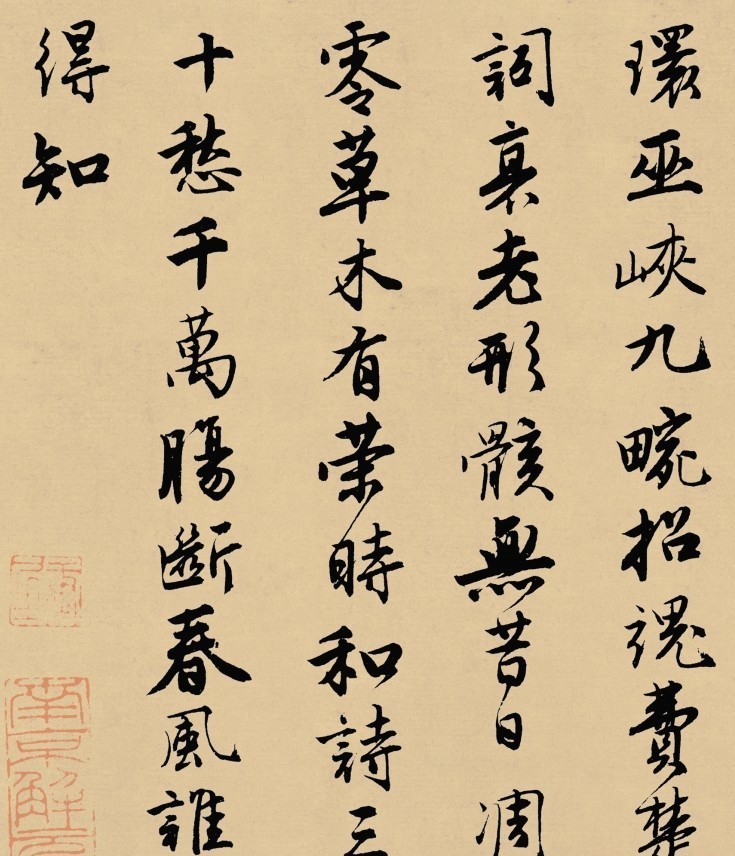 環巫峽九畹招魂費楚
詞衰老形骸無昔日凋
零草木有榮時和詩三
十愁千萬腸斷春風誰
得知
南京解元